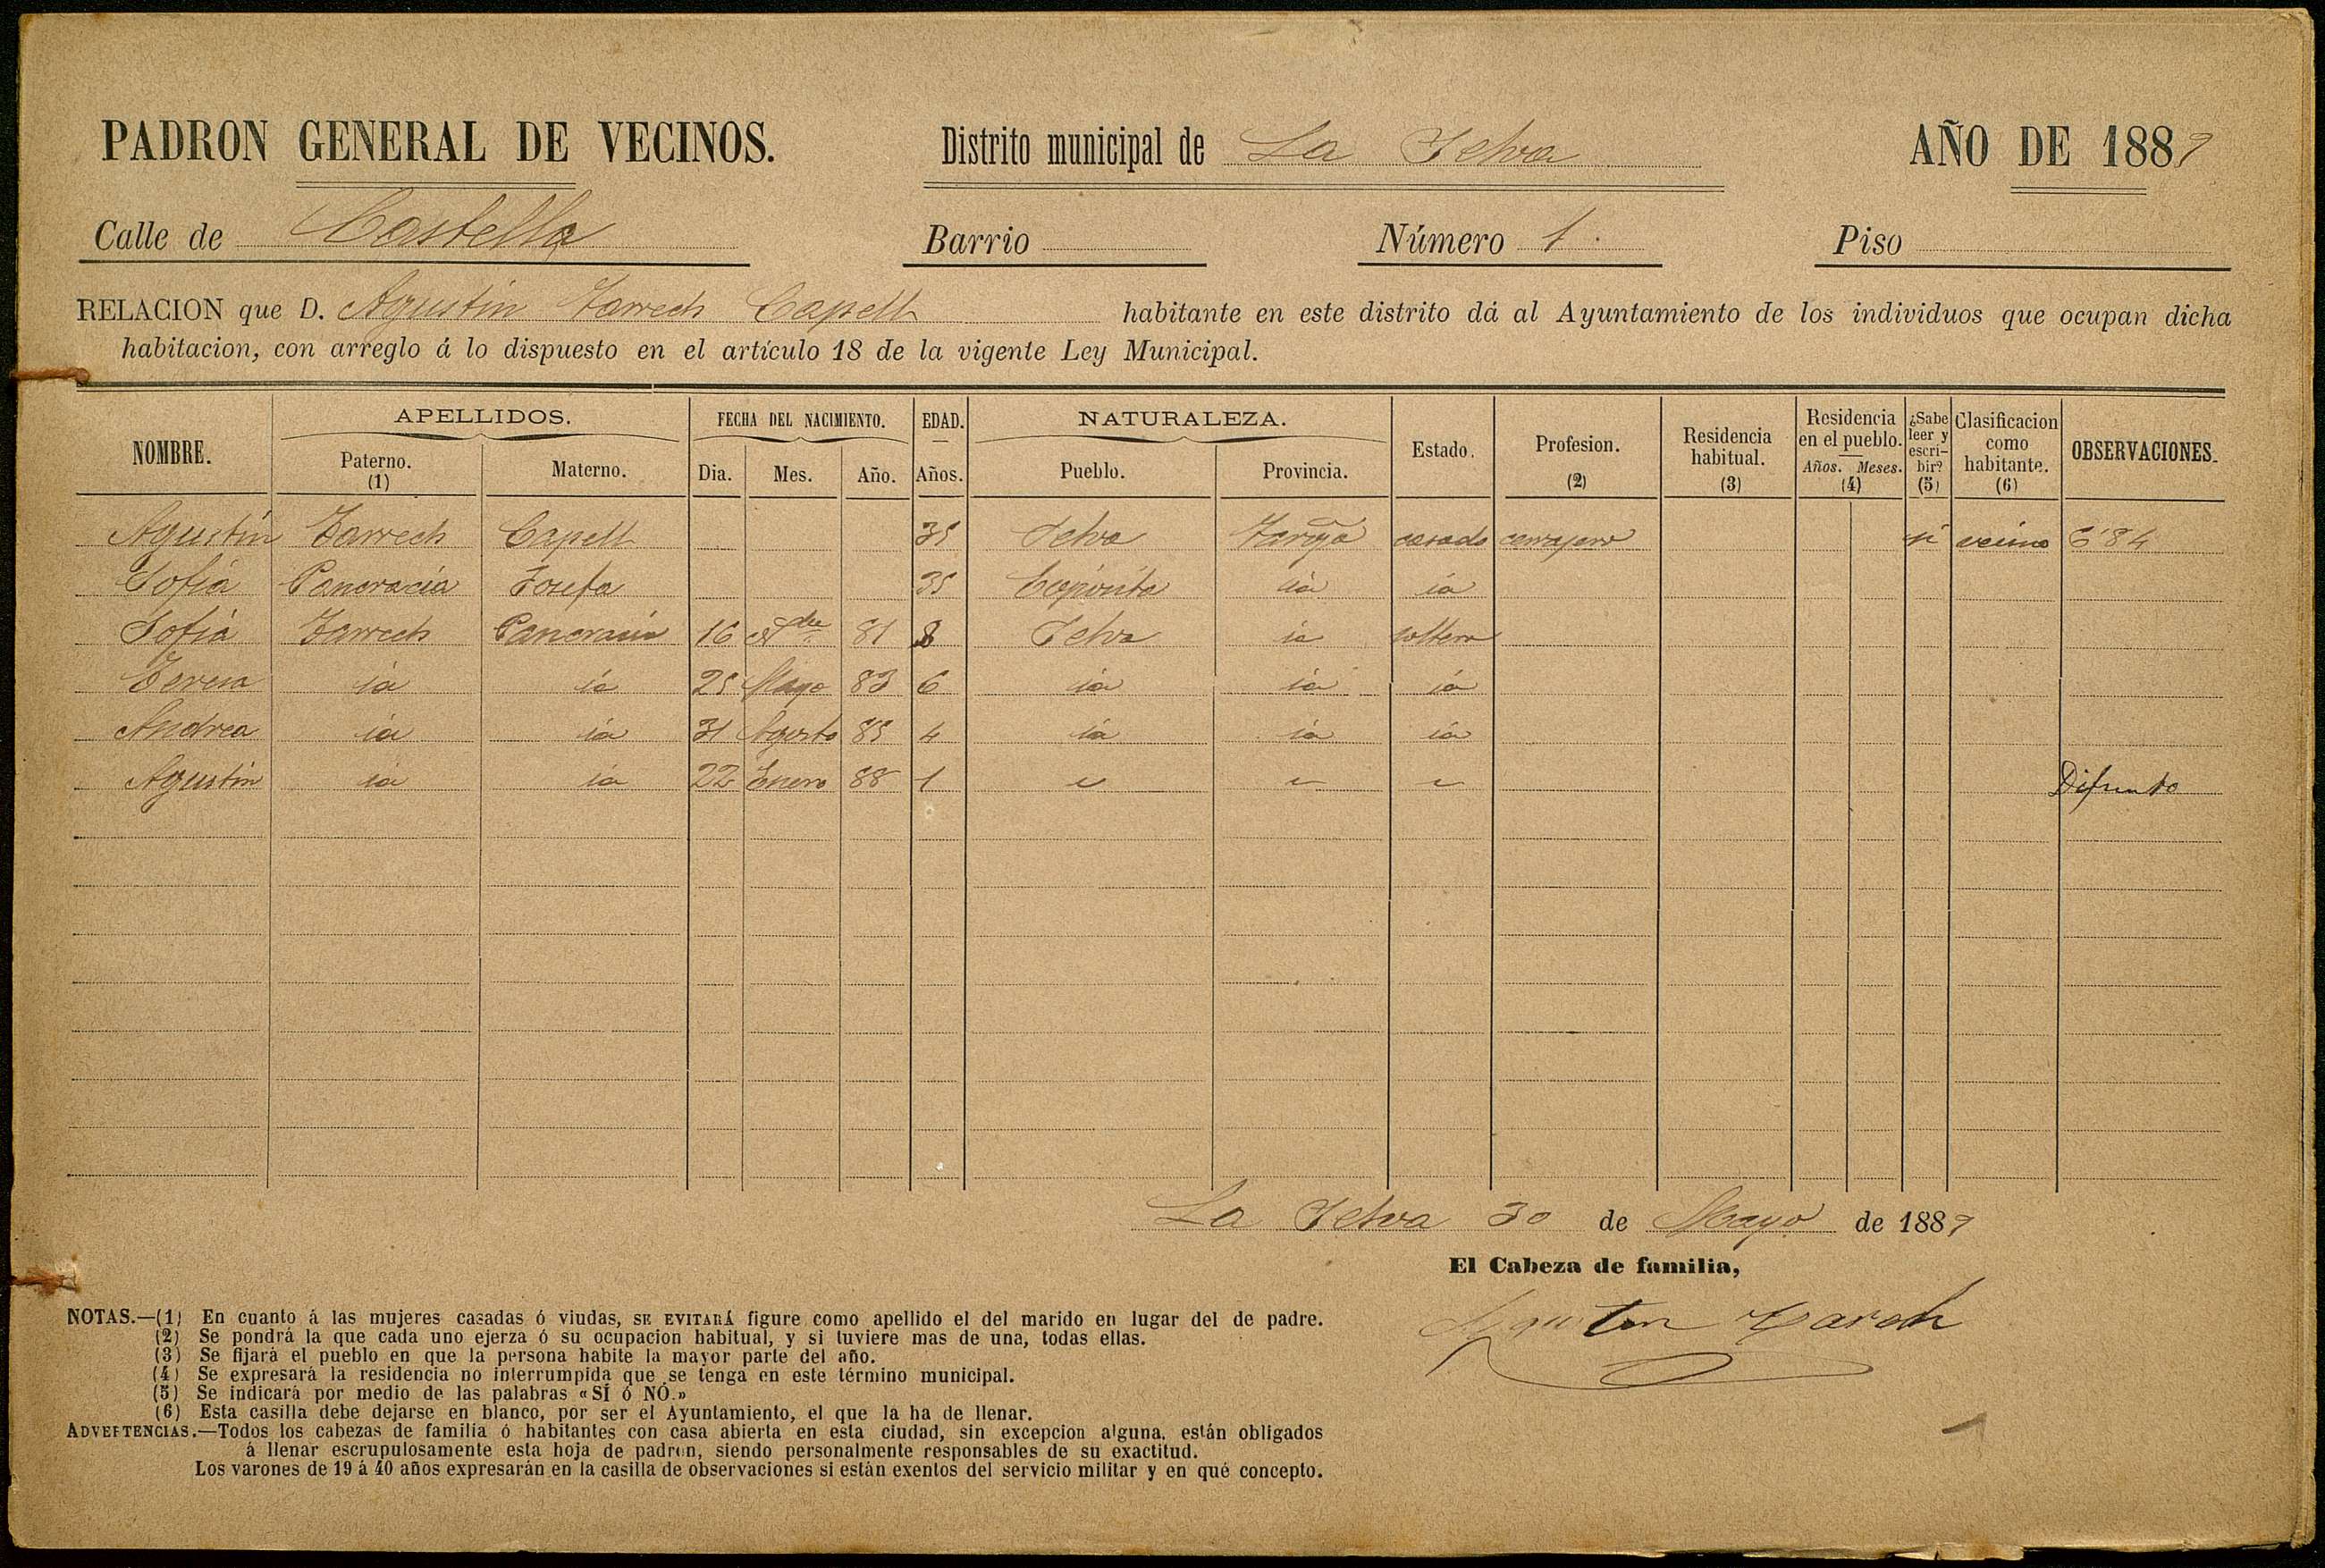 PADRON GENERAL DE VECINOS. Distrito municipal de La Selva AÑO DE 1889
Calle de Castella Barrio Número 1. Piso
RELACION que D. Agustin Tarrech Capell habitante en este distrito dá al Ayuntamiento de los individuos que ocupan dicha
habitacion, con arreglo á lo dispuesto en el artículo 18 de la vigente Ley Municipal.
NOMBRE. APELLIDOS. Paterno. (1) Materno. FECHA DEL NACIMIENTO. Dia. Mes. Año. EDAD. Años. NATURALEZA. Pueblo. Provincia. Estado. Profesion. (2) Residencia habitual. (3) Residencia en el pueblo. Años. Meses. (4) ¿Sabe leer y escribir? (5) Clasificacion como habitante. (6) OBSERVACIONES.
Agustín Tarrech Capell 35 Selva casado cerrajero si vecino 6'84
Sofia Pancracia Josefa 35 Expósita id id
Sofia Tarrech Pancracia 16 81 8 Selva id soltera
Teresa id id 25 Mayo 83 6 id id id
Andrea id id 31 Agosto 85 4 id id id
Agustin id id 22 Enero 88 1 Difunto
La Selva 30 de Mayo de 1889
El Cabeza de familia,
Agustin Tarech
NOTAS.—(1) En cuanto á las mujeres casadas ó viudas, SE EVITARÁ figure como apellido el del marido en lugar del de padre.
(2) Se pondrá la que cada uno ejerza ó su ocupacion habitual, y si tuviere mas de una, todas ellas.
(3) Se fijará el pueblo en que la persona habite la mayor parte del año.
(4) Se expresará la residencia no interrumpida que se tenga en este término municipal.
(5) Se indicará por medio de las palabras «SÍ ó NÓ.»
(6) Esta casilla debe dejarse en blanco, por ser el Ayuntamiento, el que la ha de llenar.
ADVERTENCIAS.—Todos los cabezas de familia ó habitantes con casa abierta en esta ciudad, sin excepcion alguna, están obligados
á llenar escrupulosamente esta hoja de padron, siendo personalmente responsables de su exactitud.
Los varones de 19 á 40 años expresarán en la casilla de observaciones si están exentos del servicio militar y en qué concepto.